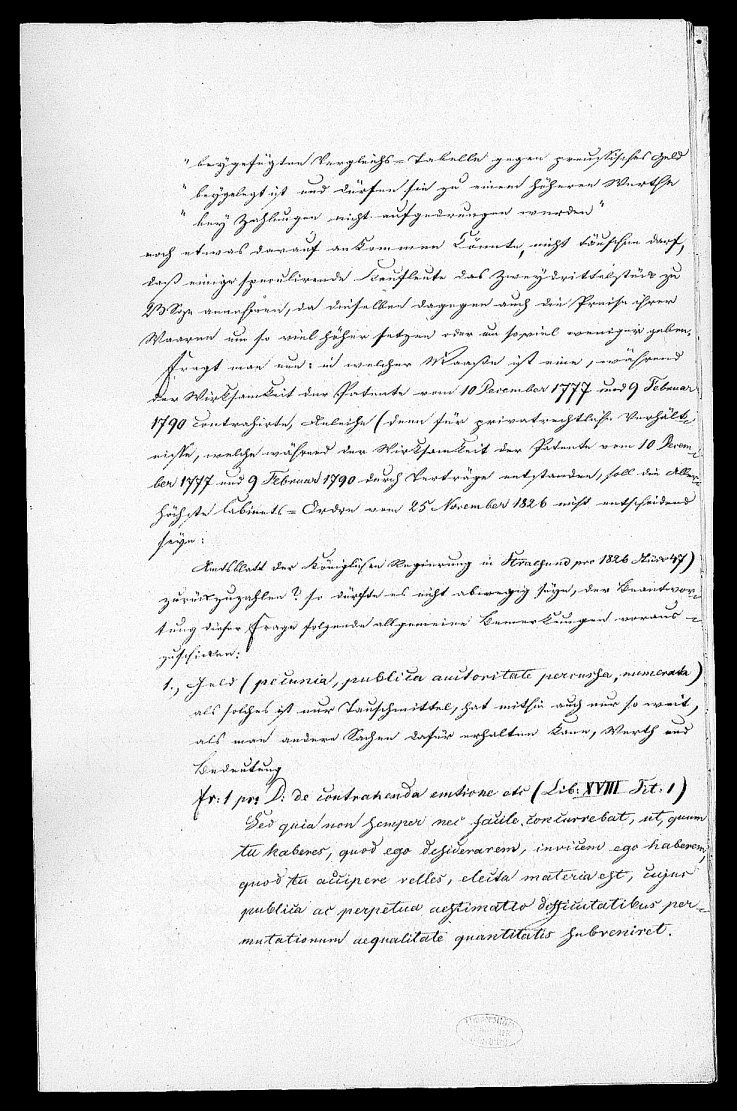 " beygefügten Vergleichs=Tabelle gegen preussisches Geld
" beygelegt ist und dürfen sie zu einem höheren Werthe
" bey Zahlungen nicht aufgedrungen werden"
noch etwas darauf ankommen könnte, nicht täuschen darf,
daß einige speculirende Kaufleute das Zweydrittelstück zu
23 Sgr annehmen, da dieselben dagegen auch die Preise ihrer
Waaren um so viel höher setzen oder um soviel weniger geben.
Fragt man nun: in welcher Maaße ist eine, während
der Wirksamkeit der Patente vom 10 December 1777 und 9 Februar
1790 contrahirte, Anleihe (denn für privatrechtliche Verhält=
nisse, welche während der Wirksamkeit der Patente vom 10 Decem=
ber 1777 und 9 Februar 1790 durch Verträge entstanden, soll die Aller=
höchste Cabinets=Ordre vom 25 November 1826 nicht entscheidend
seyn:
Amtsblatt der Königlichen Regierung in Stralsund pro 1826 Stück 47)
zurückzuzahlen? so dürfte es nicht abwegig seyn, der Beantwor=
tung dieser Frage folgende allgemeine Bemerkungen voraus=
zuschicken:
1., Geld (pecunia, publica auctoritate percussa, numerata)
als solches ist nur Tauschmittel, hat mithin auch nur so weit,
als man andere Sachen dafür erhalten kann, Werth und
Bedeutung
Fr: 1 pr: D: de contrahenda emtione etc (Lib: XVIII Tit. 1)
Sed quia non semper nec facile concurrebat, ut, quum
tu haberes, quod ego desiderarem, invicem ego haberem,
quod tu accipere velles, electa materia est, cujus
publica ac perpetua aestimatio difficultatibus per=
mutationum aequalitate quantitatis subveniret.